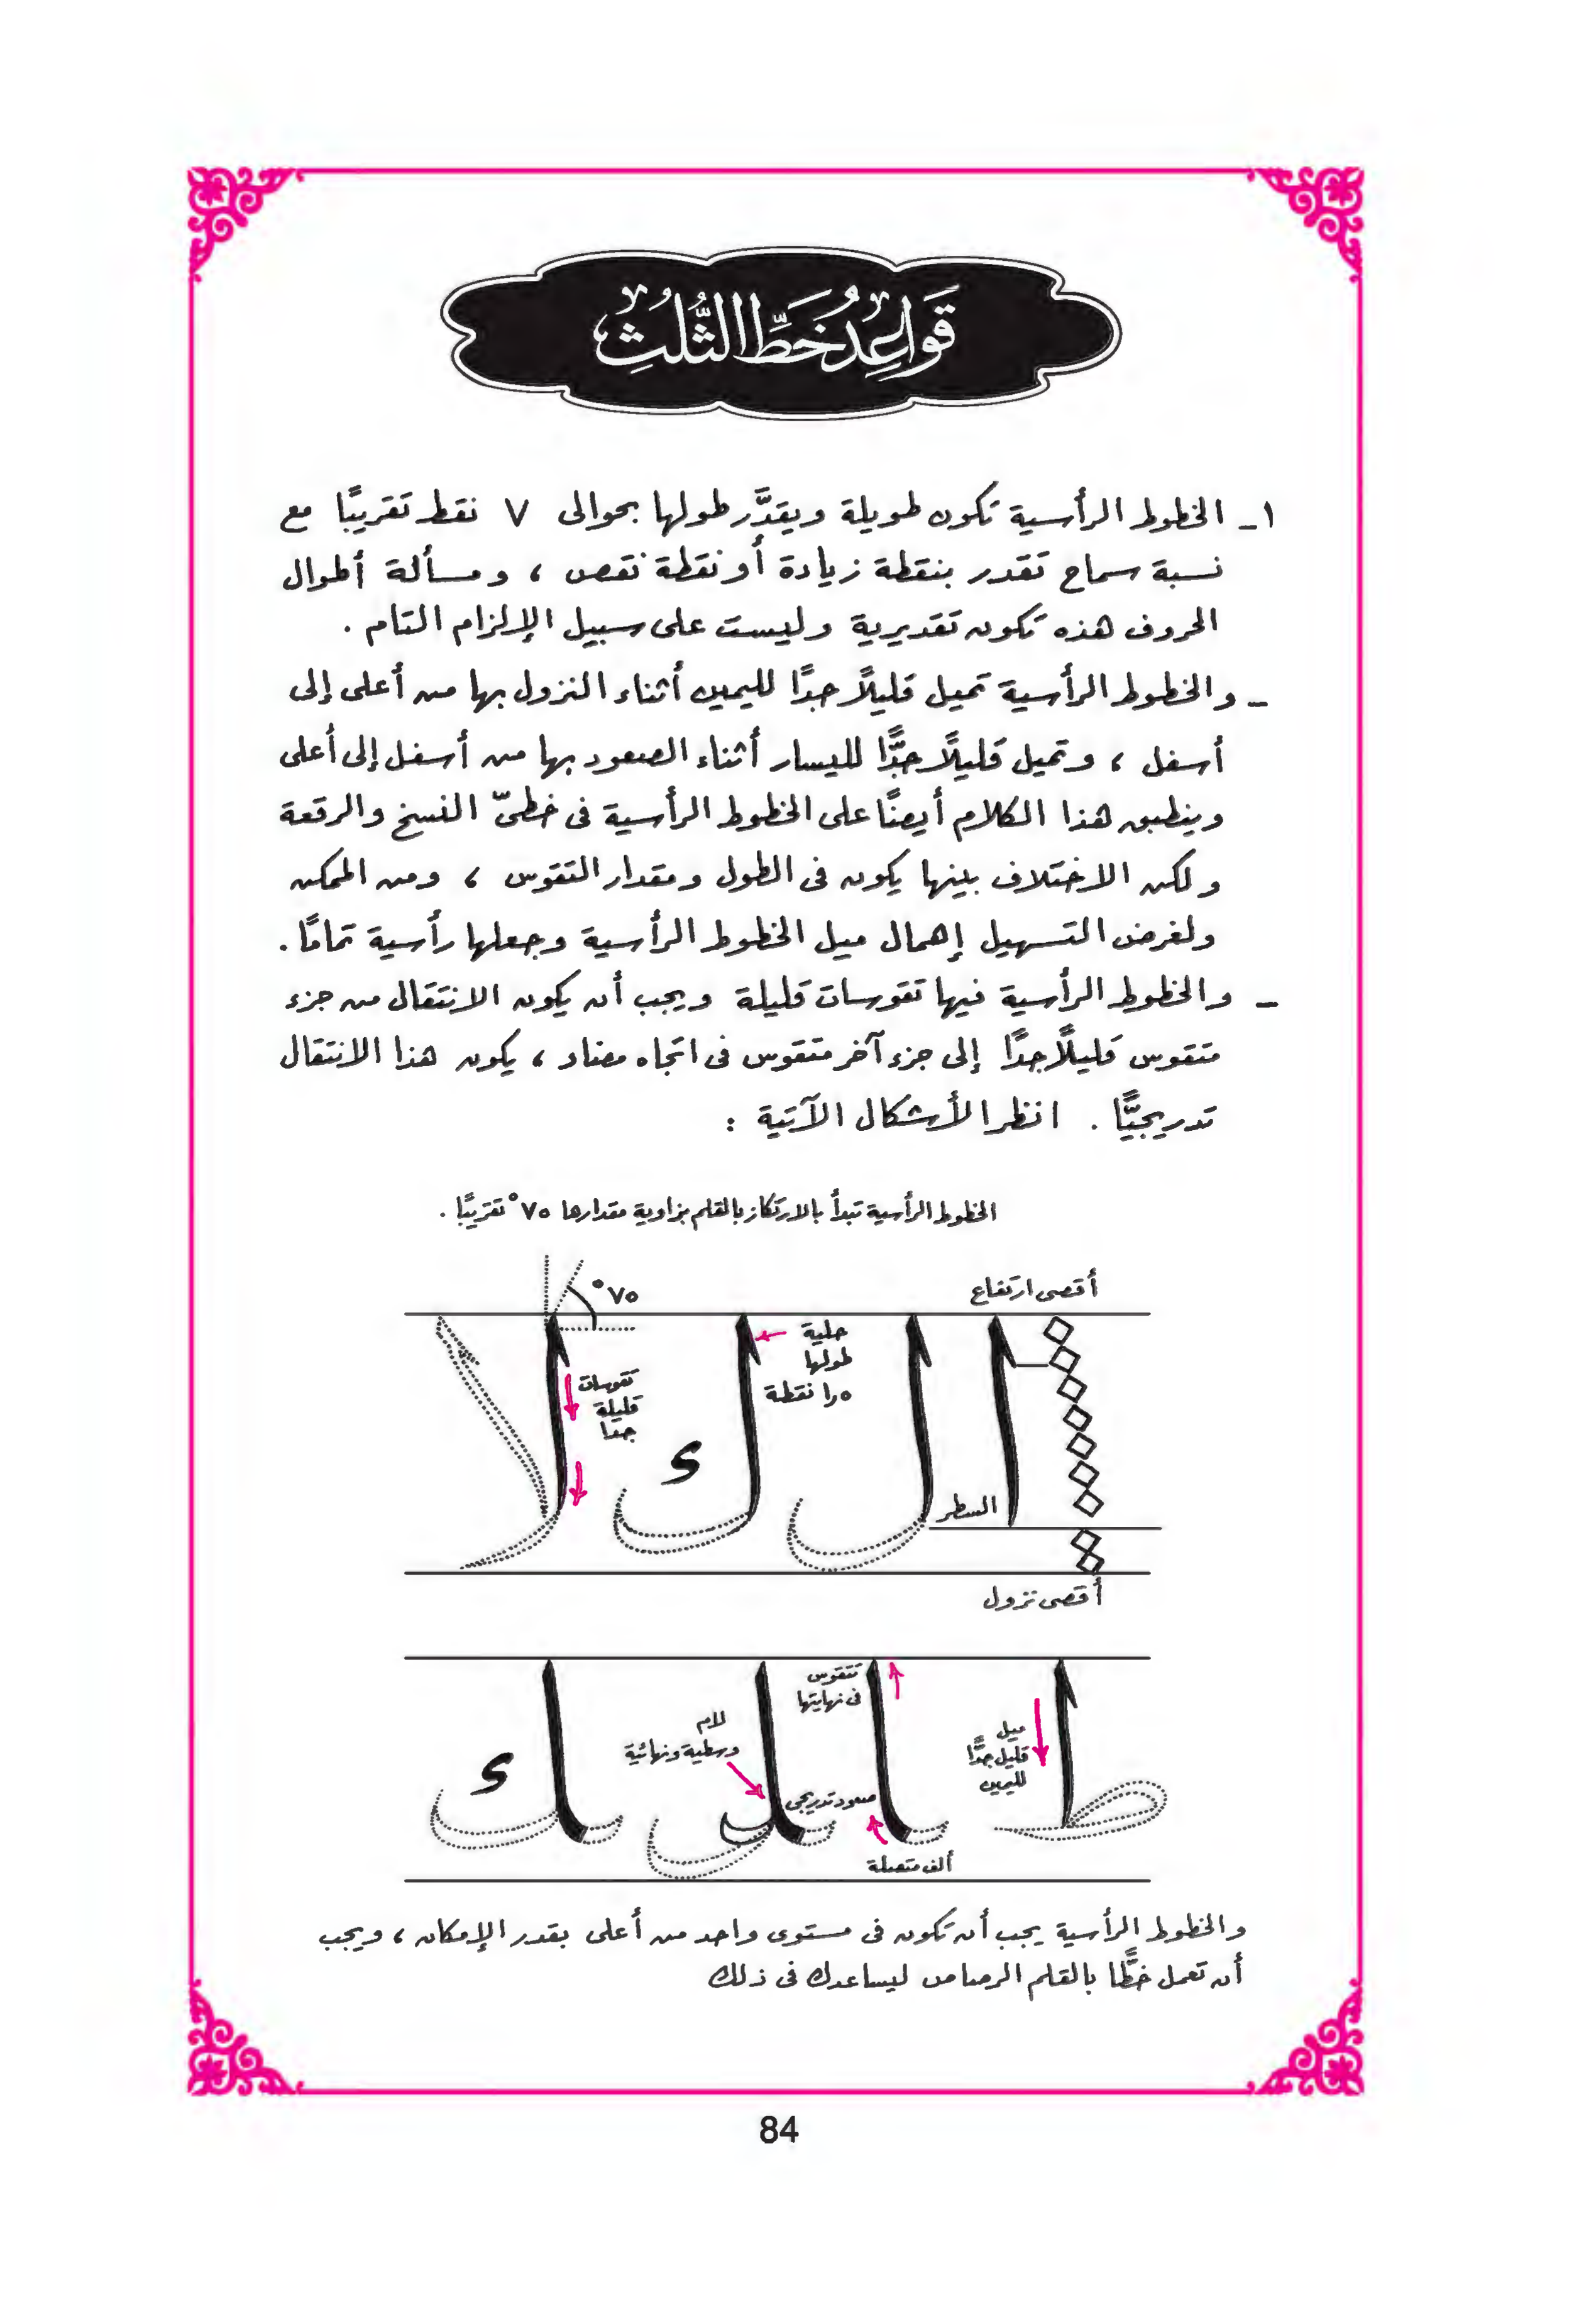 قَوَاعِدُ خَطِّ الثُّلُثِ
١ـ الخطوط الرأسية تكون طويلة ويقدَّر طولها بحوالى ٧ نقط تقريبًا مع
نسبة سماح تقدر بنقطة زيادة أو نقطة نقص ، ومسألة أطوال
الحروف هذه تكون تقديرية وليست على سبيل الإلزام التام .
ـ والخطوط الرأسية تميل قليلًا جدًا لليمين أثناء النزول بها من أعلى إلى
أسفل ، وتميل قليلًا جدًّا لليسار أثناء الصعود بها من أسفل إلى أعلى
وينطبق هذا الكلام أيضًا على الخطوط الرأسية فى خطىّ النسخ والرقعة
ولكن الاختلاف بينها يكون فى الطول ومقدار التقوس ، ومن الممكن
ولغرض التسهيل إهمال ميل الخطوط الرأسية وجعلها رأسية تمامًا .
ـ والخطوط الرأسية فيها تقوسات قليلة ويجب أن يكون الانتقال من جزء
متقوس قليلًا جدًا إلى جزء آخر متقوس فى اتجاه مضاد ، يكون هذا الانتقال
تدريجيًّا . انظر الأشكال الآتية :
الخطوط الرأسية تبدأ بالارتكاز بالقلم بزاوية مقدارها ٧٥° تقريبًا .
أقصى ارتفاع
٧٥°
حلية
طولها
١٫٥ نقطة
تقوسات
قليلة
جدًا
ا ل ك لا
السطر
أقصى نزول
تتقوس
فى نهايتها
لام
وسطية ونهائية
ميل
قليل جدًّا
لليمين
صعود تدريجى
ط ا ل ك
ألف متصلة
والخطوط الرأسية يجب أن تكون فى مستوى واحد من أعلى بقدر الإمكان ، ويجب
أن تعمل خطًّا بالقلم الرصاص ليساعدك فى ذلك
84